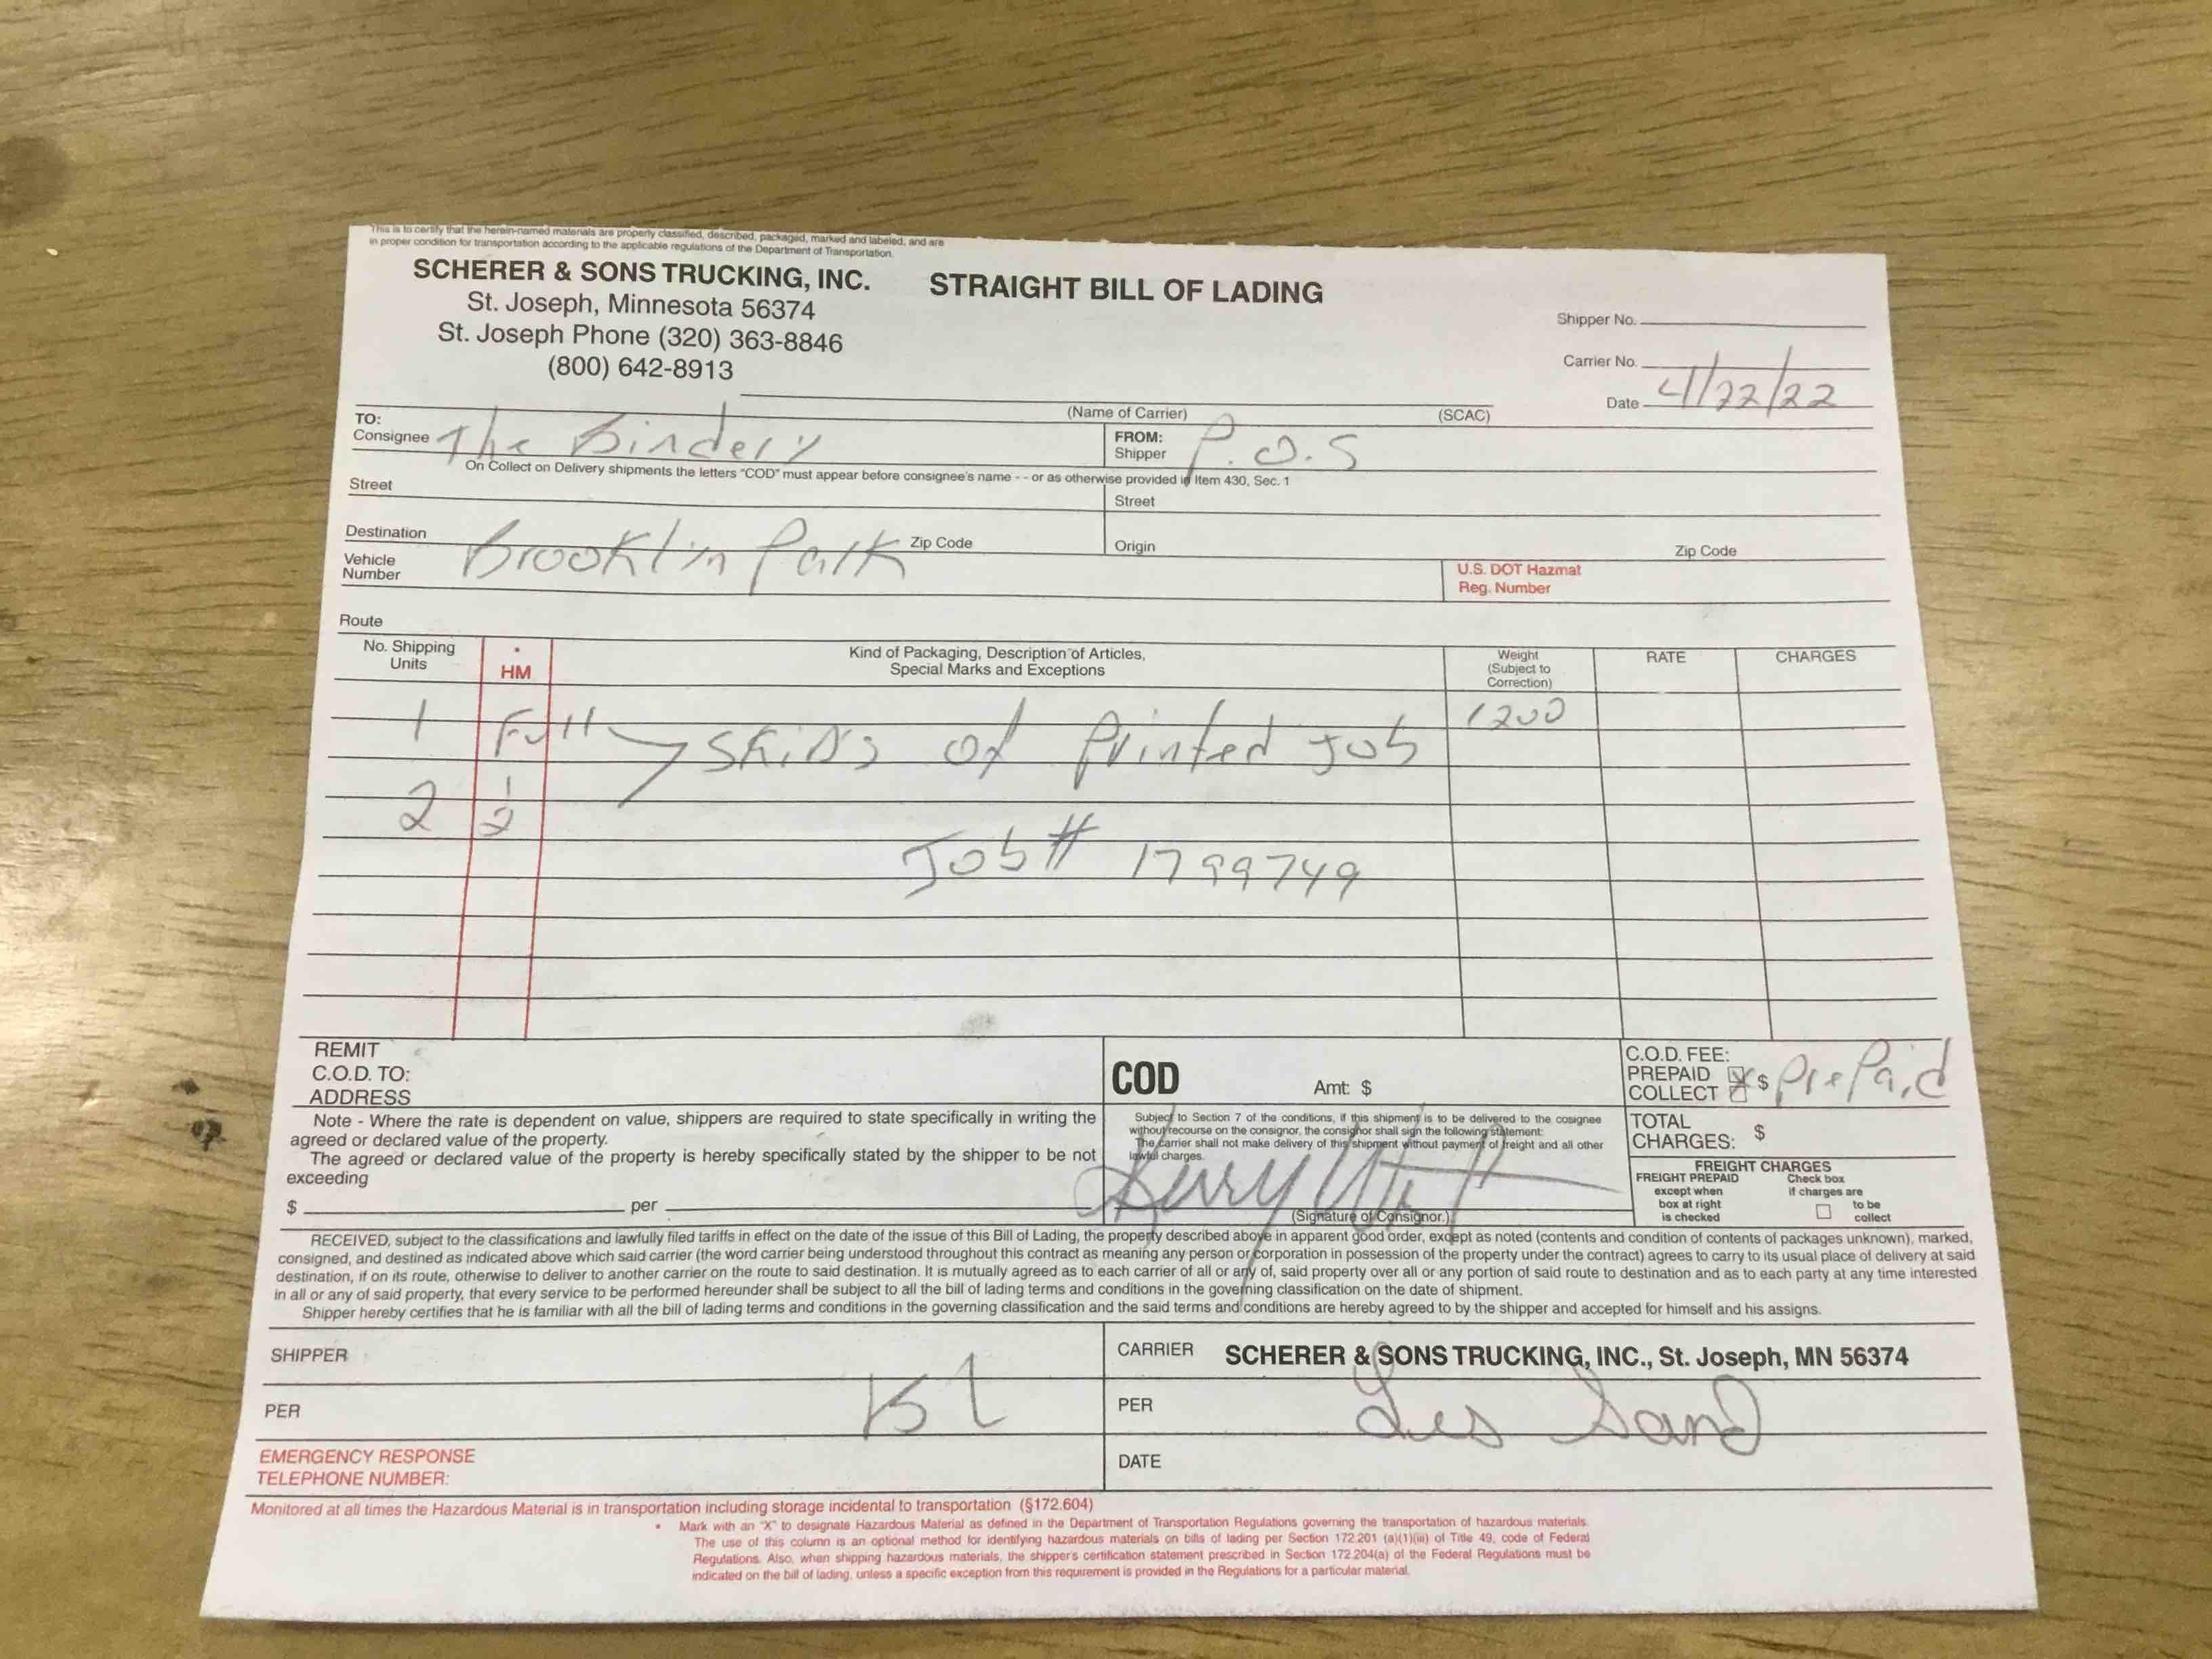 This is to certify that the herein-named materials are properly classified, described, packaged, marked and labeled, and are
in proper condition for transportation according to the applicable regulations of the Department of Transportation.
SCHERER & SONS TRUCKING, INC.
St. Joseph, Minnesota 56374
St. Joseph Phone (320) 363-8846
(800) 642-8913
STRAIGHT BILL OF LADING
Shipper No.
Carrier No.
Date 4/22/22
(Name of Carrier) (SCAC)
TO:
Consignee The Bindery
FROM:
Shipper P.O.S
On Collect on Delivery shipments the letters "COD" must appear before consignee's name - - or as otherwise provided in Item 430, Sec. 1
Street
Street
Destination Brooklin Park Zip Code
Origin Zip Code
Vehicle
Number
U.S. DOT Hazmat
Reg. Number
Route
No. Shipping
Units
*
HM
Kind of Packaging, Description of Articles,
Special Marks and Exceptions
Weight
(Subject to
Correction)
RATE
CHARGES
1 Full Skids of Printed Job 1200
2 1/2
Job # 1799749
REMIT
C.O.D. TO:
ADDRESS
COD Amt: $
C.O.D. FEE:
PREPAID
COLLECT $ PrePaid
Note - Where the rate is dependent on value, shippers are required to state specifically in writing the
agreed or declared value of the property.
The agreed or declared value of the property is hereby specifically stated by the shipper to be not
exceeding
$ per
Subject to Section 7 of the conditions, if this shipment is to be delivered to the cosignee
without recourse on the consignor, the consignor shall sign the following statement:
The carrier shall not make delivery of this shipment without payment of freight and all other
lawful charges.
(Signature of Consignor.)
TOTAL
CHARGES: $
FREIGHT CHARGES
FREIGHT PREPAID
except when
box at right
is checked
Check box
if charges are
to be
collect
RECEIVED, subject to the classifications and lawfully filed tariffs in effect on the date of the issue of this Bill of Lading, the property described above in apparent good order, except as noted (contents and condition of contents of packages unknown), marked,
consigned, and destined as indicated above which said carrier (the word carrier being understood throughout this contract as meaning any person or corporation in possession of the property under the contract) agrees to carry to its usual place of delivery at said
destination, if on its route, otherwise to deliver to another carrier on the route to said destination. It is mutually agreed as to each carrier of all or any of, said property over all or any portion of said route to destination and as to each party at any time interested
in all or any of said property, that every service to be performed hereunder shall be subject to all the bill of lading terms and conditions in the governing classification on the date of shipment.
Shipper hereby certifies that he is familiar with all the bill of lading terms and conditions in the governing classification and the said terms and conditions are hereby agreed to by the shipper and accepted for himself and his assigns.
SHIPPER
CARRIER SCHERER & SONS TRUCKING, INC., St. Joseph, MN 56374
PER
PER Les Sand
EMERGENCY RESPONSE
TELEPHONE NUMBER:
DATE
Monitored at all times the Hazardous Material is in transportation including storage incidental to transportation (§172.604)
* Mark with an "X" to designate Hazardous Material as defined in the Department of Transportation Regulations governing the transportation of hazardous materials.
The use of this column is an optional method for identifying hazardous materials on bills of lading per Section 172.201 (a)(1)(iii) of Title 49, code of Federal
Regulations. Also, when shipping hazardous materials, the shipper's certification statement prescribed in Section 172.204(a) of the Federal Regulations must be
indicated on the bill of lading, unless a specific exception from this requirement is provided in the Regulations for a particular material.